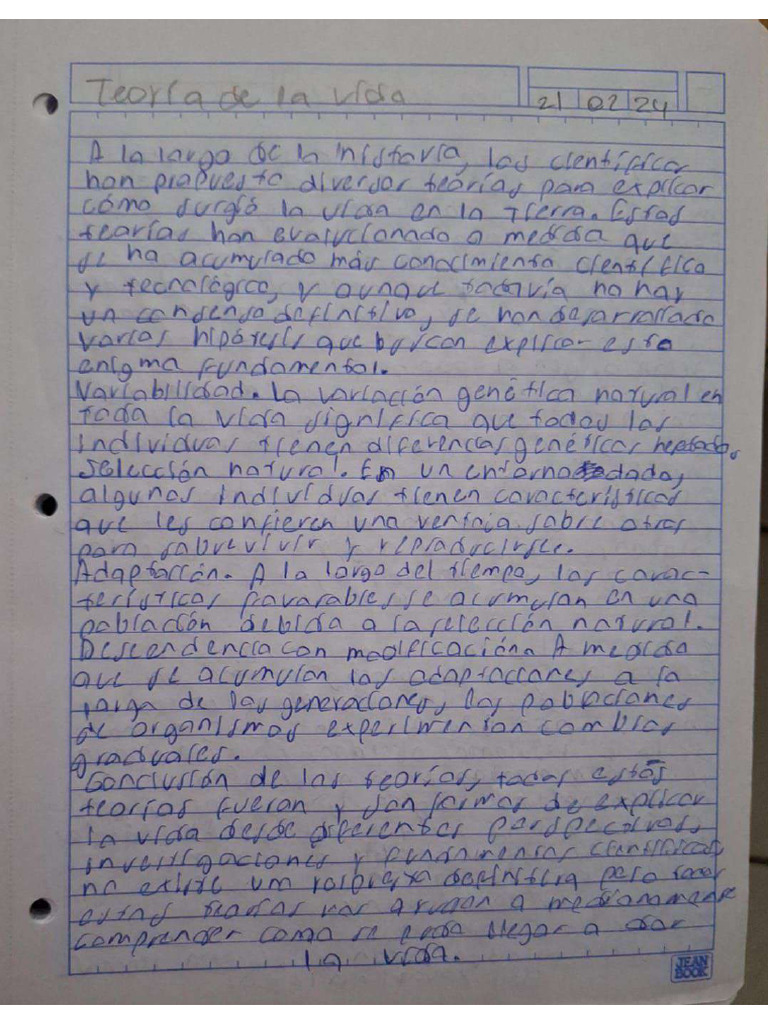 Teoría de la vida
21 02 24
A lo largo de la historia, los científicos
han propuesto diversas teorías para explicar
cómo surgió la vida en la Tierra. Estas
teorías han evolucionado a medida que
se ha acumulado más conocimiento científico
y tecnológico, y aunque todavía no hay
un consenso definitivo, se han desarrollado
varias hipótesis que buscan explicar este
enigma fundamental.
Variabilidad. La variación genética natural en
toda la vida significa que todos los
individuos tienen diferencias genéticas
Selección natural. En un entorno dado,
algunos individuos tienen características
que les confieren una ventaja sobre otros
para sobrevivir y reproducirse.
Adaptación. A lo largo del tiempo, las carac-
terísticas favorables se acumulan en una
población debido a la selección natural.
Descendencia con modificación. A medida
que se acumulan las adaptaciones a lo
largo de las generaciones, las poblaciones
de organismos experimentan cambios
graduales.
Conclusión de las teorías, todas estas
teorías fueron y son formas de explicar
la vida desde diferentes perspectivas,
investigaciones y científicos,
no existe un definitiva pero todas
estas teorías nos ayudan a medianamente
comprender como se pudo llegar a dar
la vida.
JEAN
BOOK